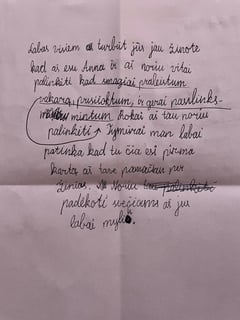 Labas visiem turbūt jūs jau žinote
kad aš esu Anna ir aš noriu vitai
palinkėti kad smagiai praleistum
vakarą, prisiloktum, ir gerai pasilinks-
mintum. Kokai aš tau noriu
palinkėti. Kymirai man labai
patinka kad tu čia esi pirma
karta aš tave pamačiau per
žinias. Noriu tau palinkėti
padėkoti svečiams aš jus
labai myliu.